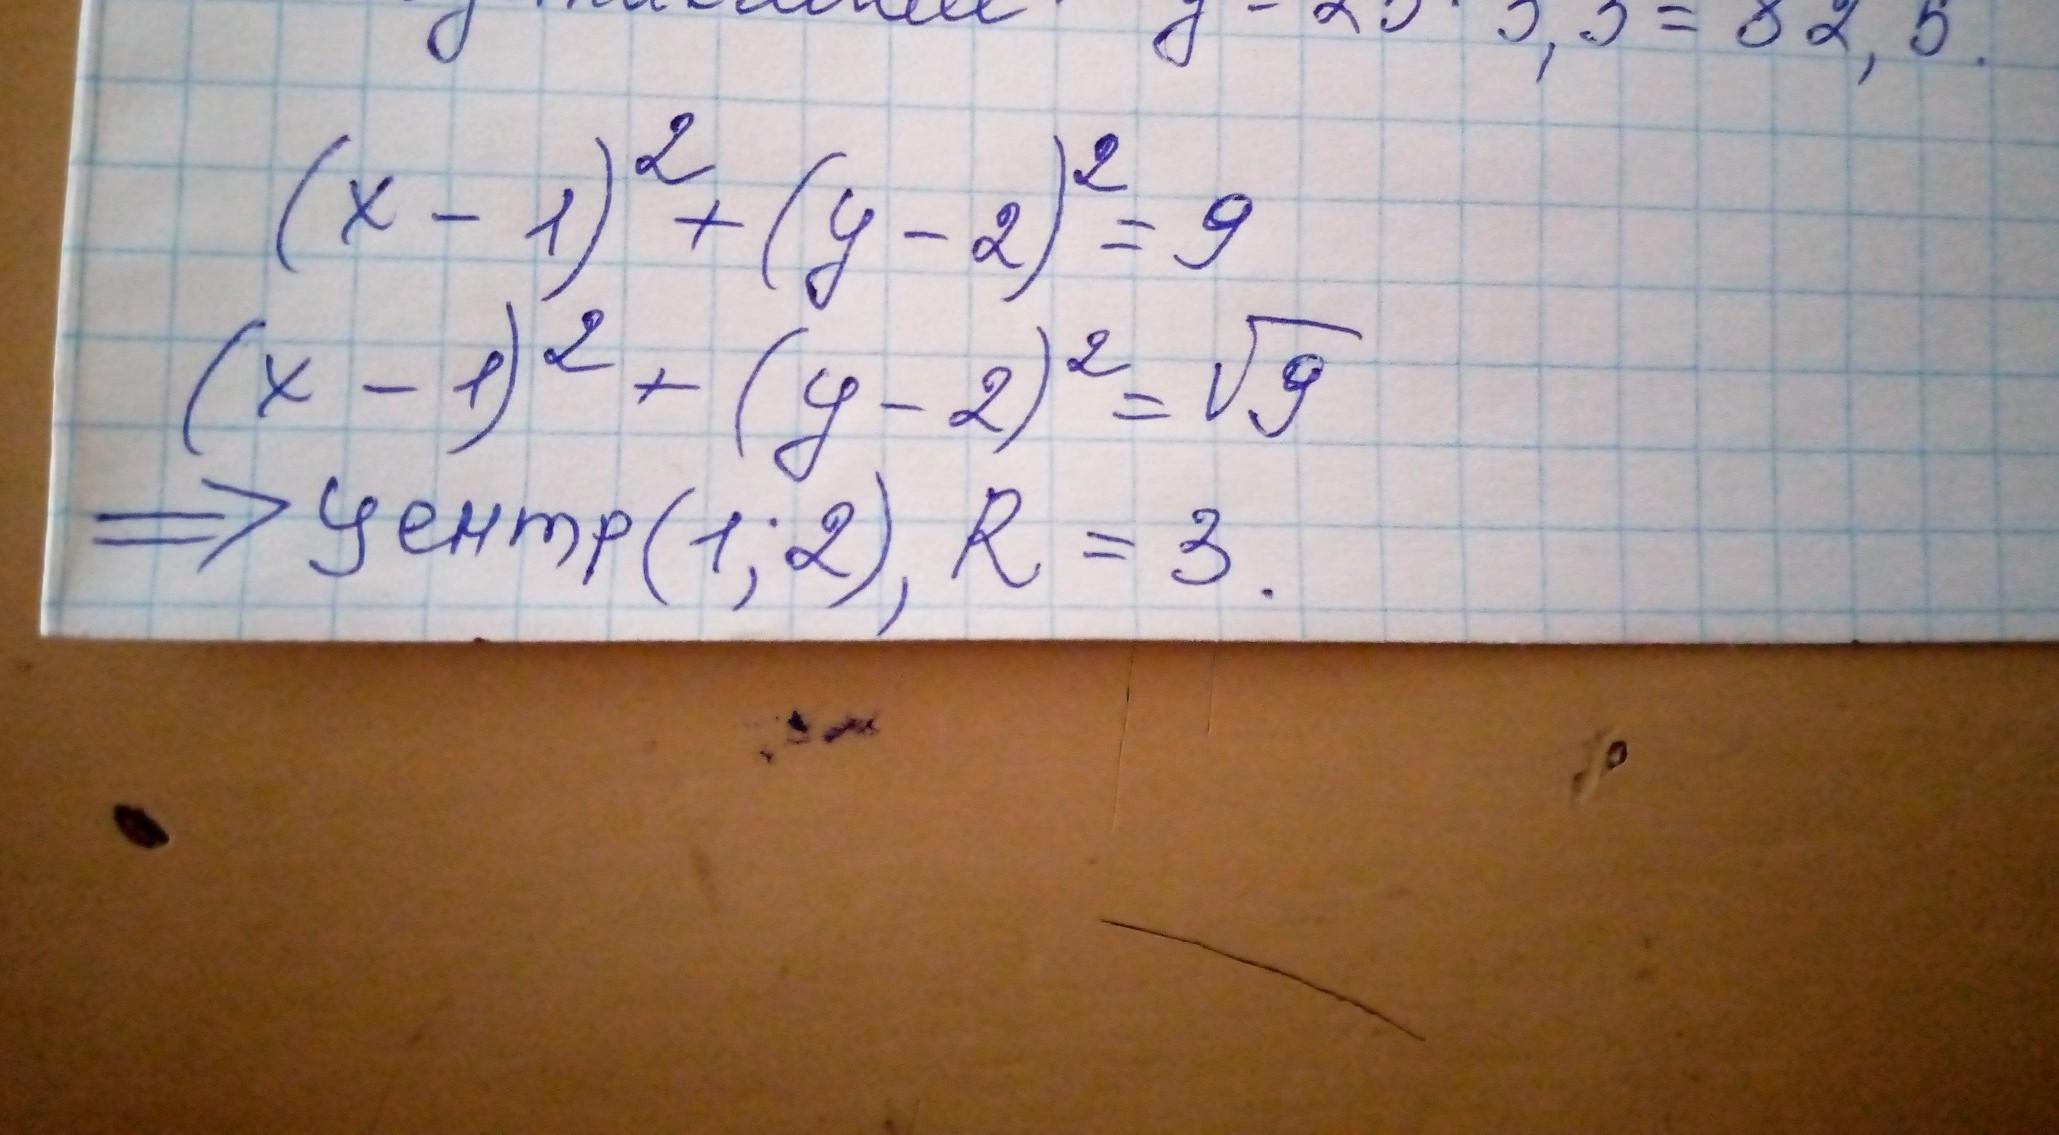 = 82,5.
(x - 1)² + (y - 2)² = 9
(x - 1)² + (y - 2)² = √9
⟹ Центр (1; 2), R = 3.